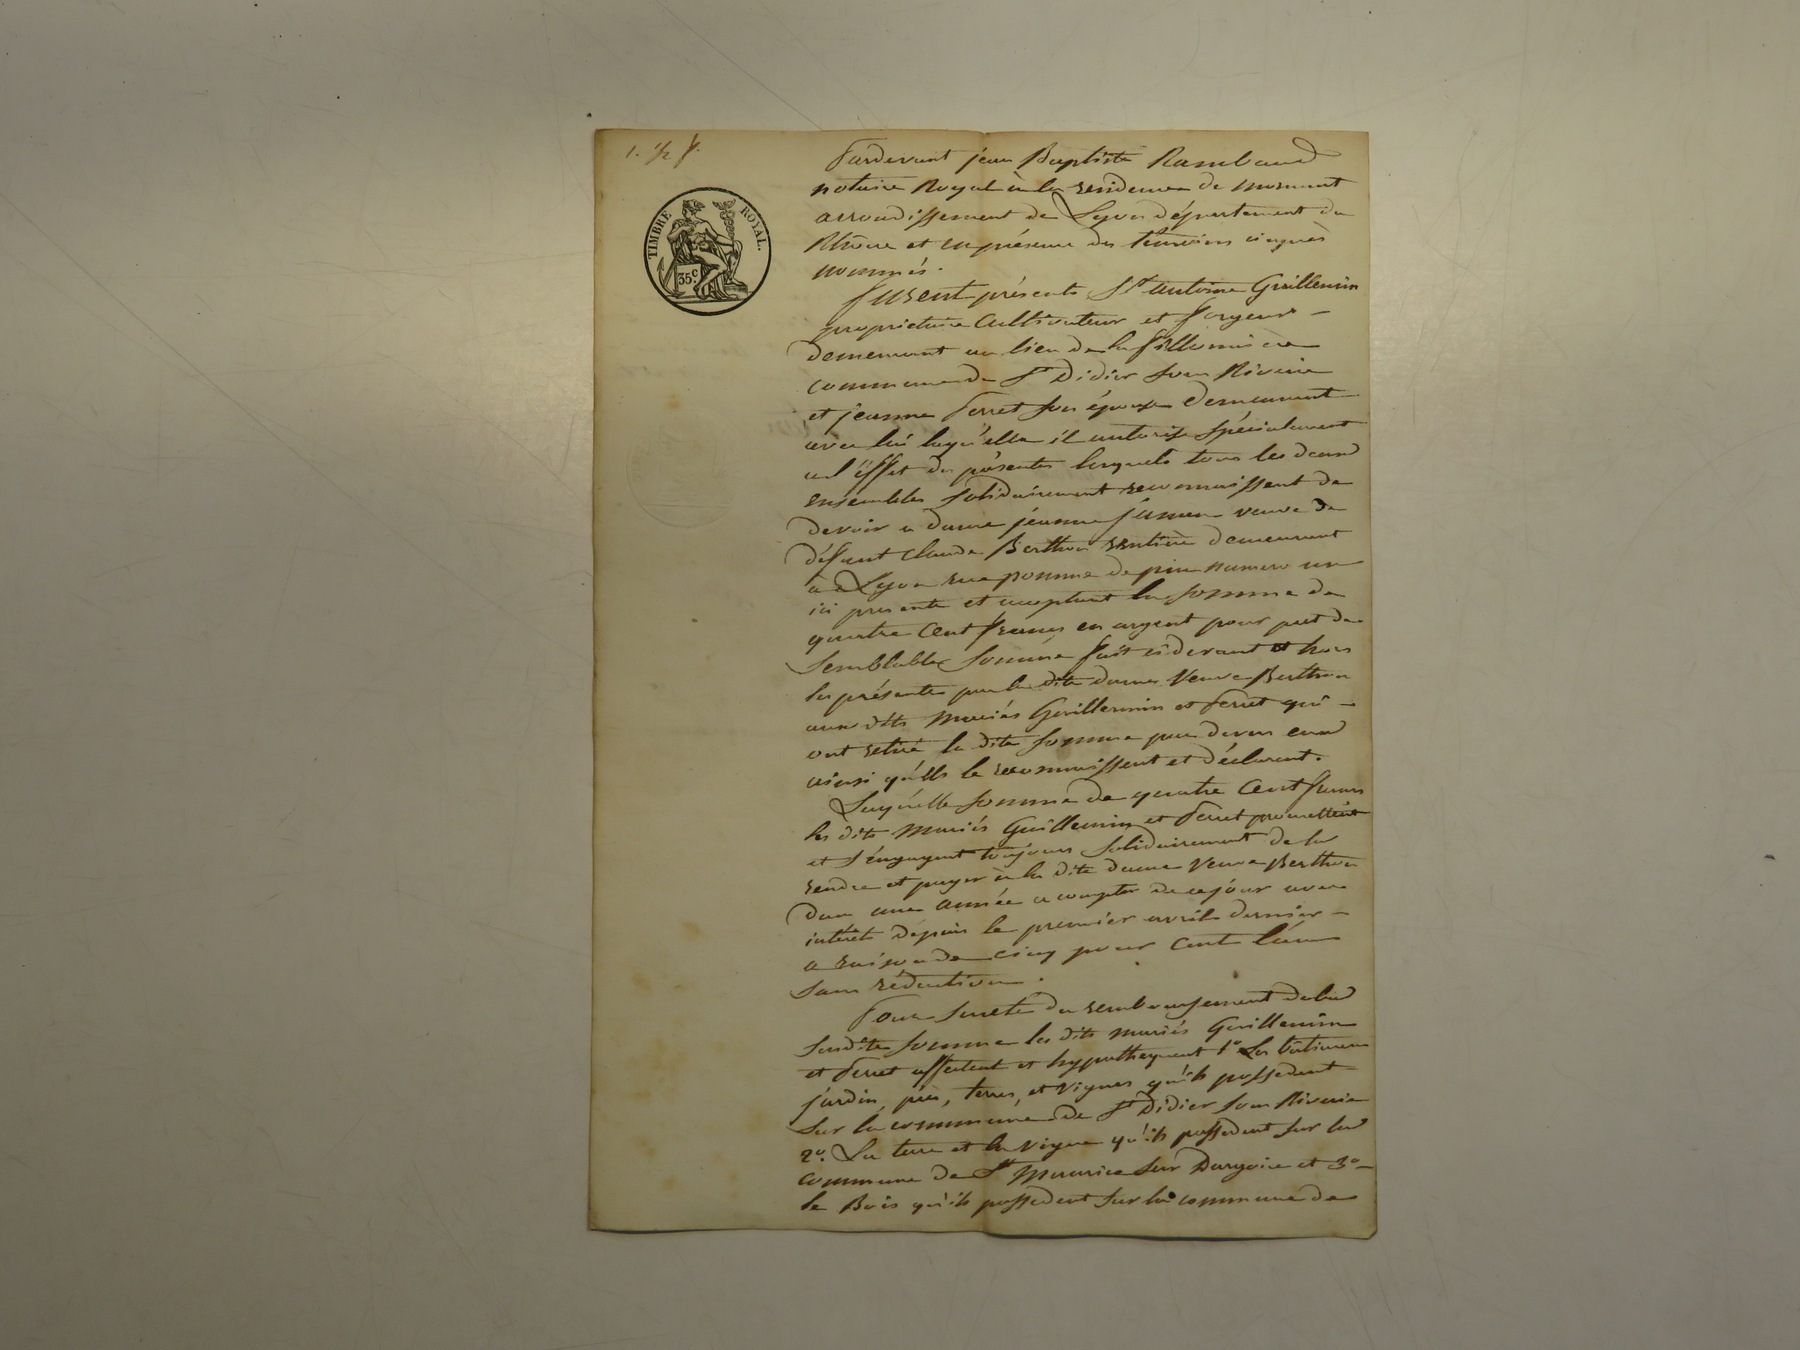 1. 1/2 f.
TIMBRE ROYAL.
35c.
Pardevant jean Baptiste Rambaud
notaire Royal à la residence de mornant
arrondissement de Lyon département du
Rhône et en présence des temoins ci après
nommés.
furent présents Sr antoine Guillermin
proprietaire Cultivateur et forgeur
demeurant au lieu de la
commune de St Didier sous Riverie
et jeanne ferret son épouse demeurant
avec lui laquelle il autorise spécialement
a l'effet des présentes lesquels tous les deux
ensembles solidairement reconnaissent de
devoir a dame jeanne veuve de
défunt claude Berthon rentière demeurant
a Lyon rue pomme de pin numero un
ici presente et acceptant la somme de
quatre Cent francs en argent pour pret de
semblable somme fait ci devant et hors
les présentes par la dite dame Veuve Berthon
aux dits mariés Guillermin et ferret qui
ont retiré la dite somme par devers eux
ainsi qu'ils le reconnaissent et déclarent.
Laquelle somme de quatre Cent francs
les dits mariés Guillermin et ferret promettent
et s'engagent toujours solidairement de la
rendre et payer à la dite dame Veuve Berthon
dans une année a compter de ce jour avec
intérêts depuis le premier avril dernier
a raison de cinq pour Cent l'an
sans réduction.
Pour sureté du remboursement de la
susdite somme les dits mariés Guillermin
et ferret affectent et hypothequent 1° Les bâtimens
jardin, prés, terres, et vignes qu'ils possedent
sur la commune de St Didier sous Riverie
2°. La terre et la vigne qu'ils possedent sur la
commune de St Maurice sur Dargoire et 3°
le Bois qu'ils possedent sur la commune de